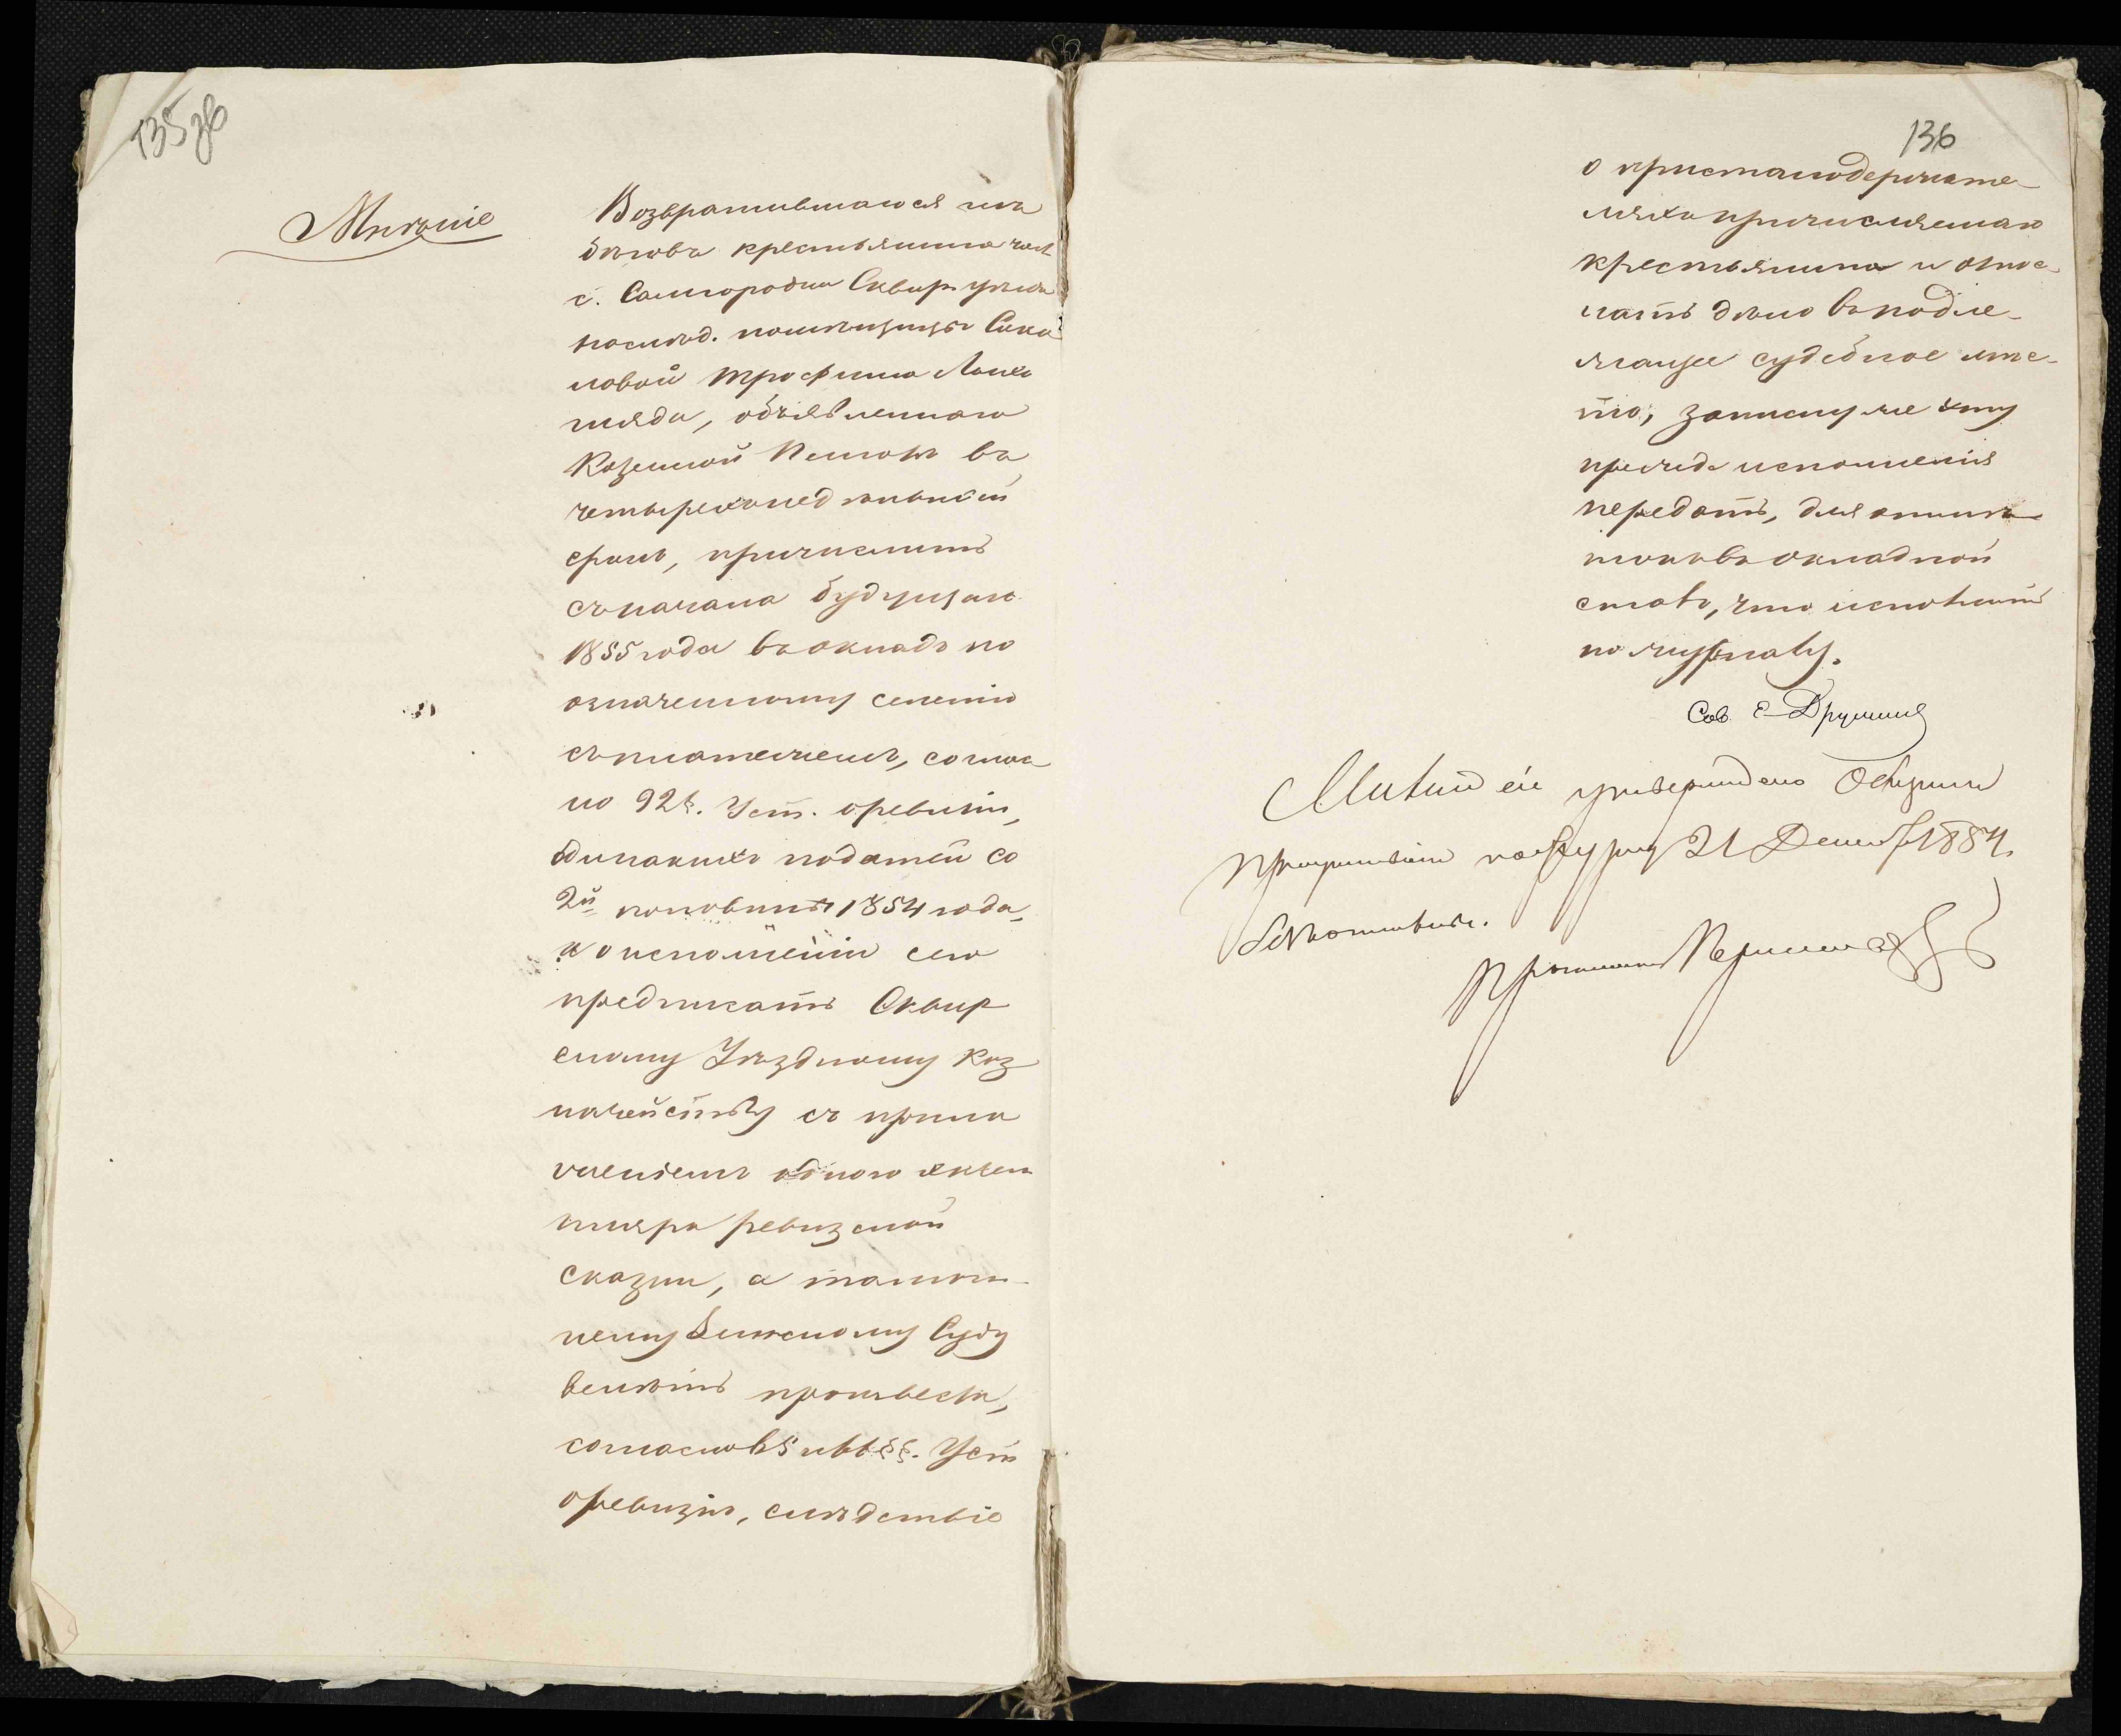 135 зв
Мнѣніе
Возвратившагося изъ
бѣговъ крестьянина част.
с. Самгородка Сквир. уѣзда
наслѣд. помѣщицы Сока
ловой Трофима
гляда, объявленнаго
Казенной Палатѣ въ
четырехънедѣльный
срокъ, причислить
съ начала будущаго
1855 года въ окладъ по
означенному селенію
съ платежемъ, соглас
но 92 §. Уст. о ревизіи,
одинакихъ податей со
2й половины 1854 года,
и о исполненіи сего
предписать Сквир
скому Уѣздному Каз
начейству съ прила
гаеніемъ одного экзем
пляра ревизской
сказки, а тамош-
нему Земскому Суду
велѣть произвести,
согласно §§. Уст
о ревизіи, слѣдствіе
136
о пристанодержате-
ляхъ причисляемаго
крестьянина и отос-
лать дѣло въ подле-
жащее судебное мѣс-
то, записку же эту
прежде исполненія
передать, для отмѣт
токъ въ окладной
столъ, что исполнить
по журналу.
Сов.
Мнѣніе сіе утверждено Общимъ
Присутствіемъ по журналу 21 Декабр 1854.